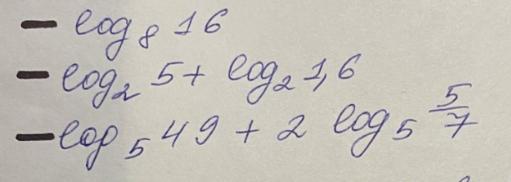 - log₈ 16
- log₂ 5 + log₂ 1,6
- log₅ 49 + 2 log₅ 5/7